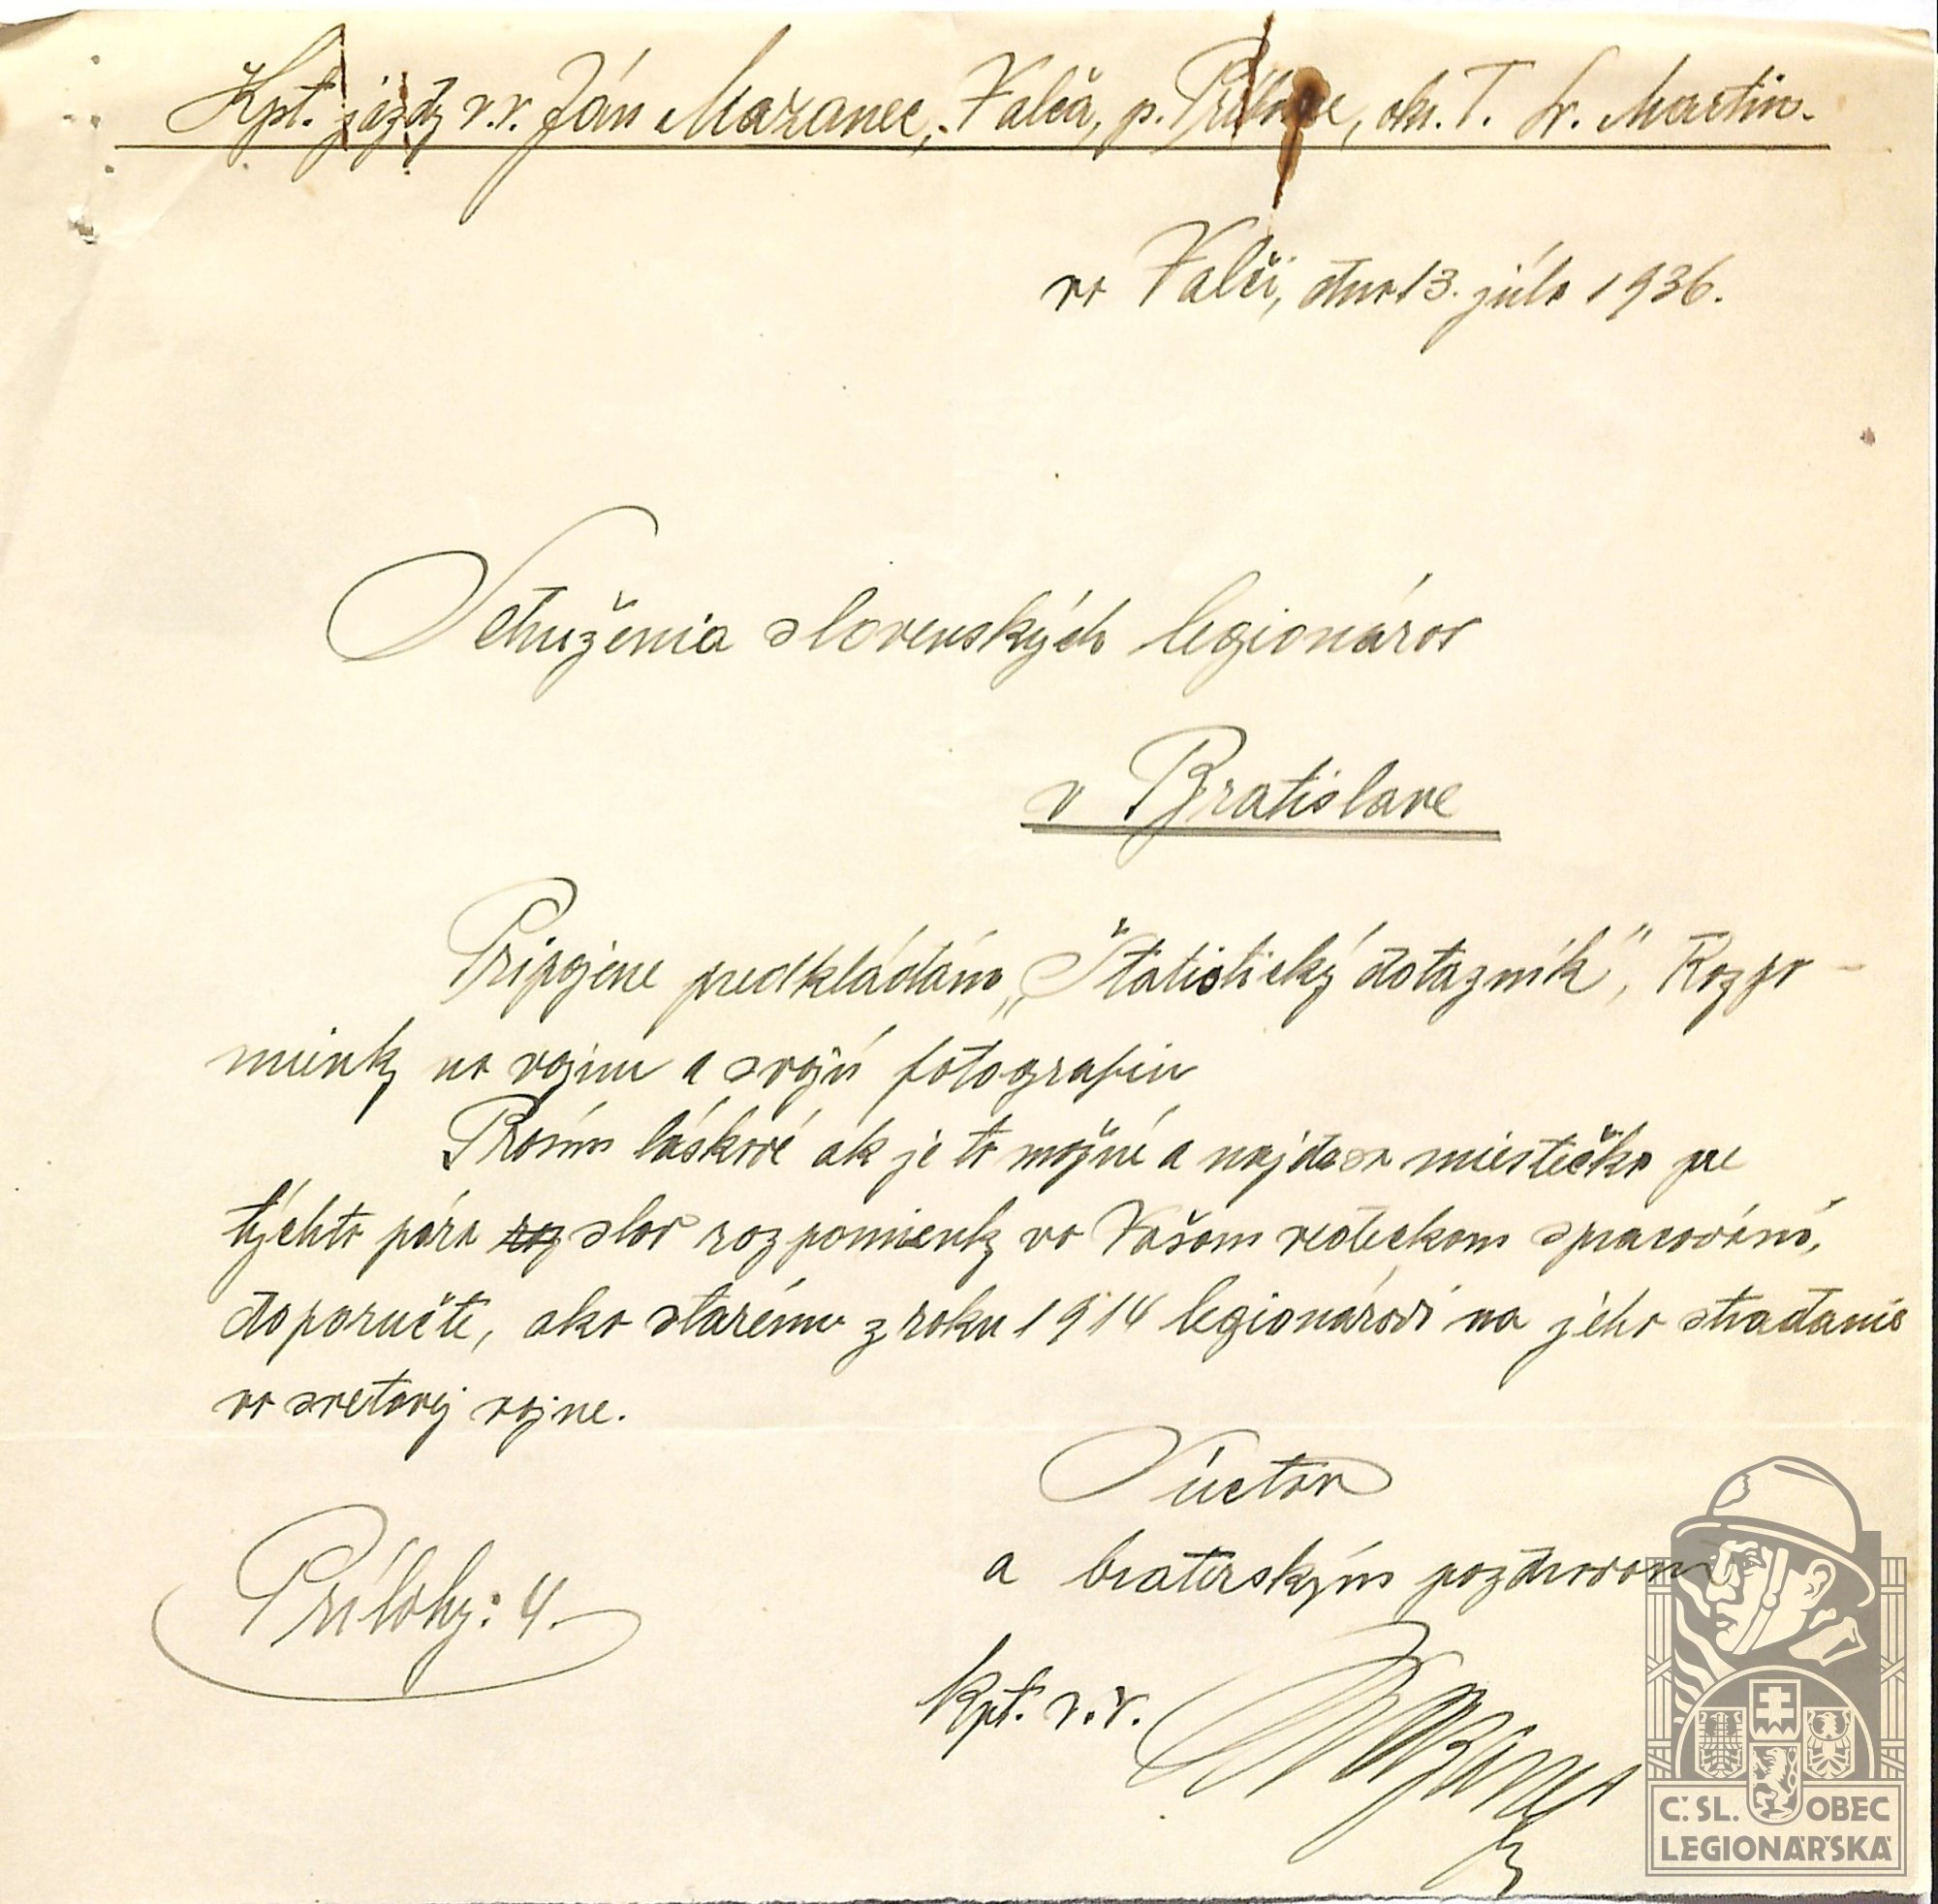 Kpt. jázdy v.v. Ján Mazanec, Valča, p. Príbovce, okr. T. Sv. Martin.
vo Valči, dňa 13. júla 1936.
Sdruženia slovenských legionárov
v Bratislave
Pripojene predkládám „Štatistický dotazník", Rozpo-
mienky na vojnu a svoju fotografiu
Prosím láskavé ak je to možné a najde sa miestečko pre
týchto pára slov rozpomienky vo Vašom vedeckom spracovánó,
doporučte, ako starému z roku 1914 legionárovi na jeho stradanie
vo svetovej vojne.
S úctou
a braterským pozdravom
Prílohy: 4.
kpt. v.v. Mazanec
Č. SL. OBEC
LEGIONÁŘSKÁ